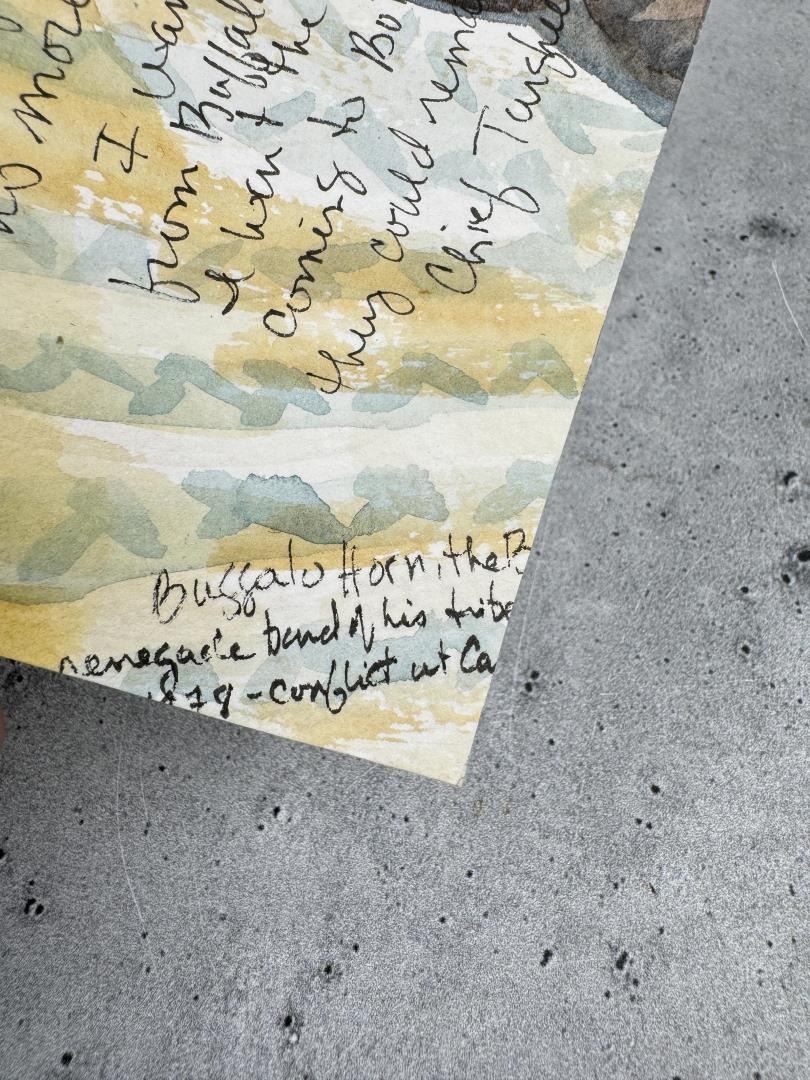 no more
I wan
from Buffal
& when I & the
coming to Bo
they could rema
Chief Targhee
Buggalo Horn, the B
renegade band of his tribe
1878 - conflict at Ca